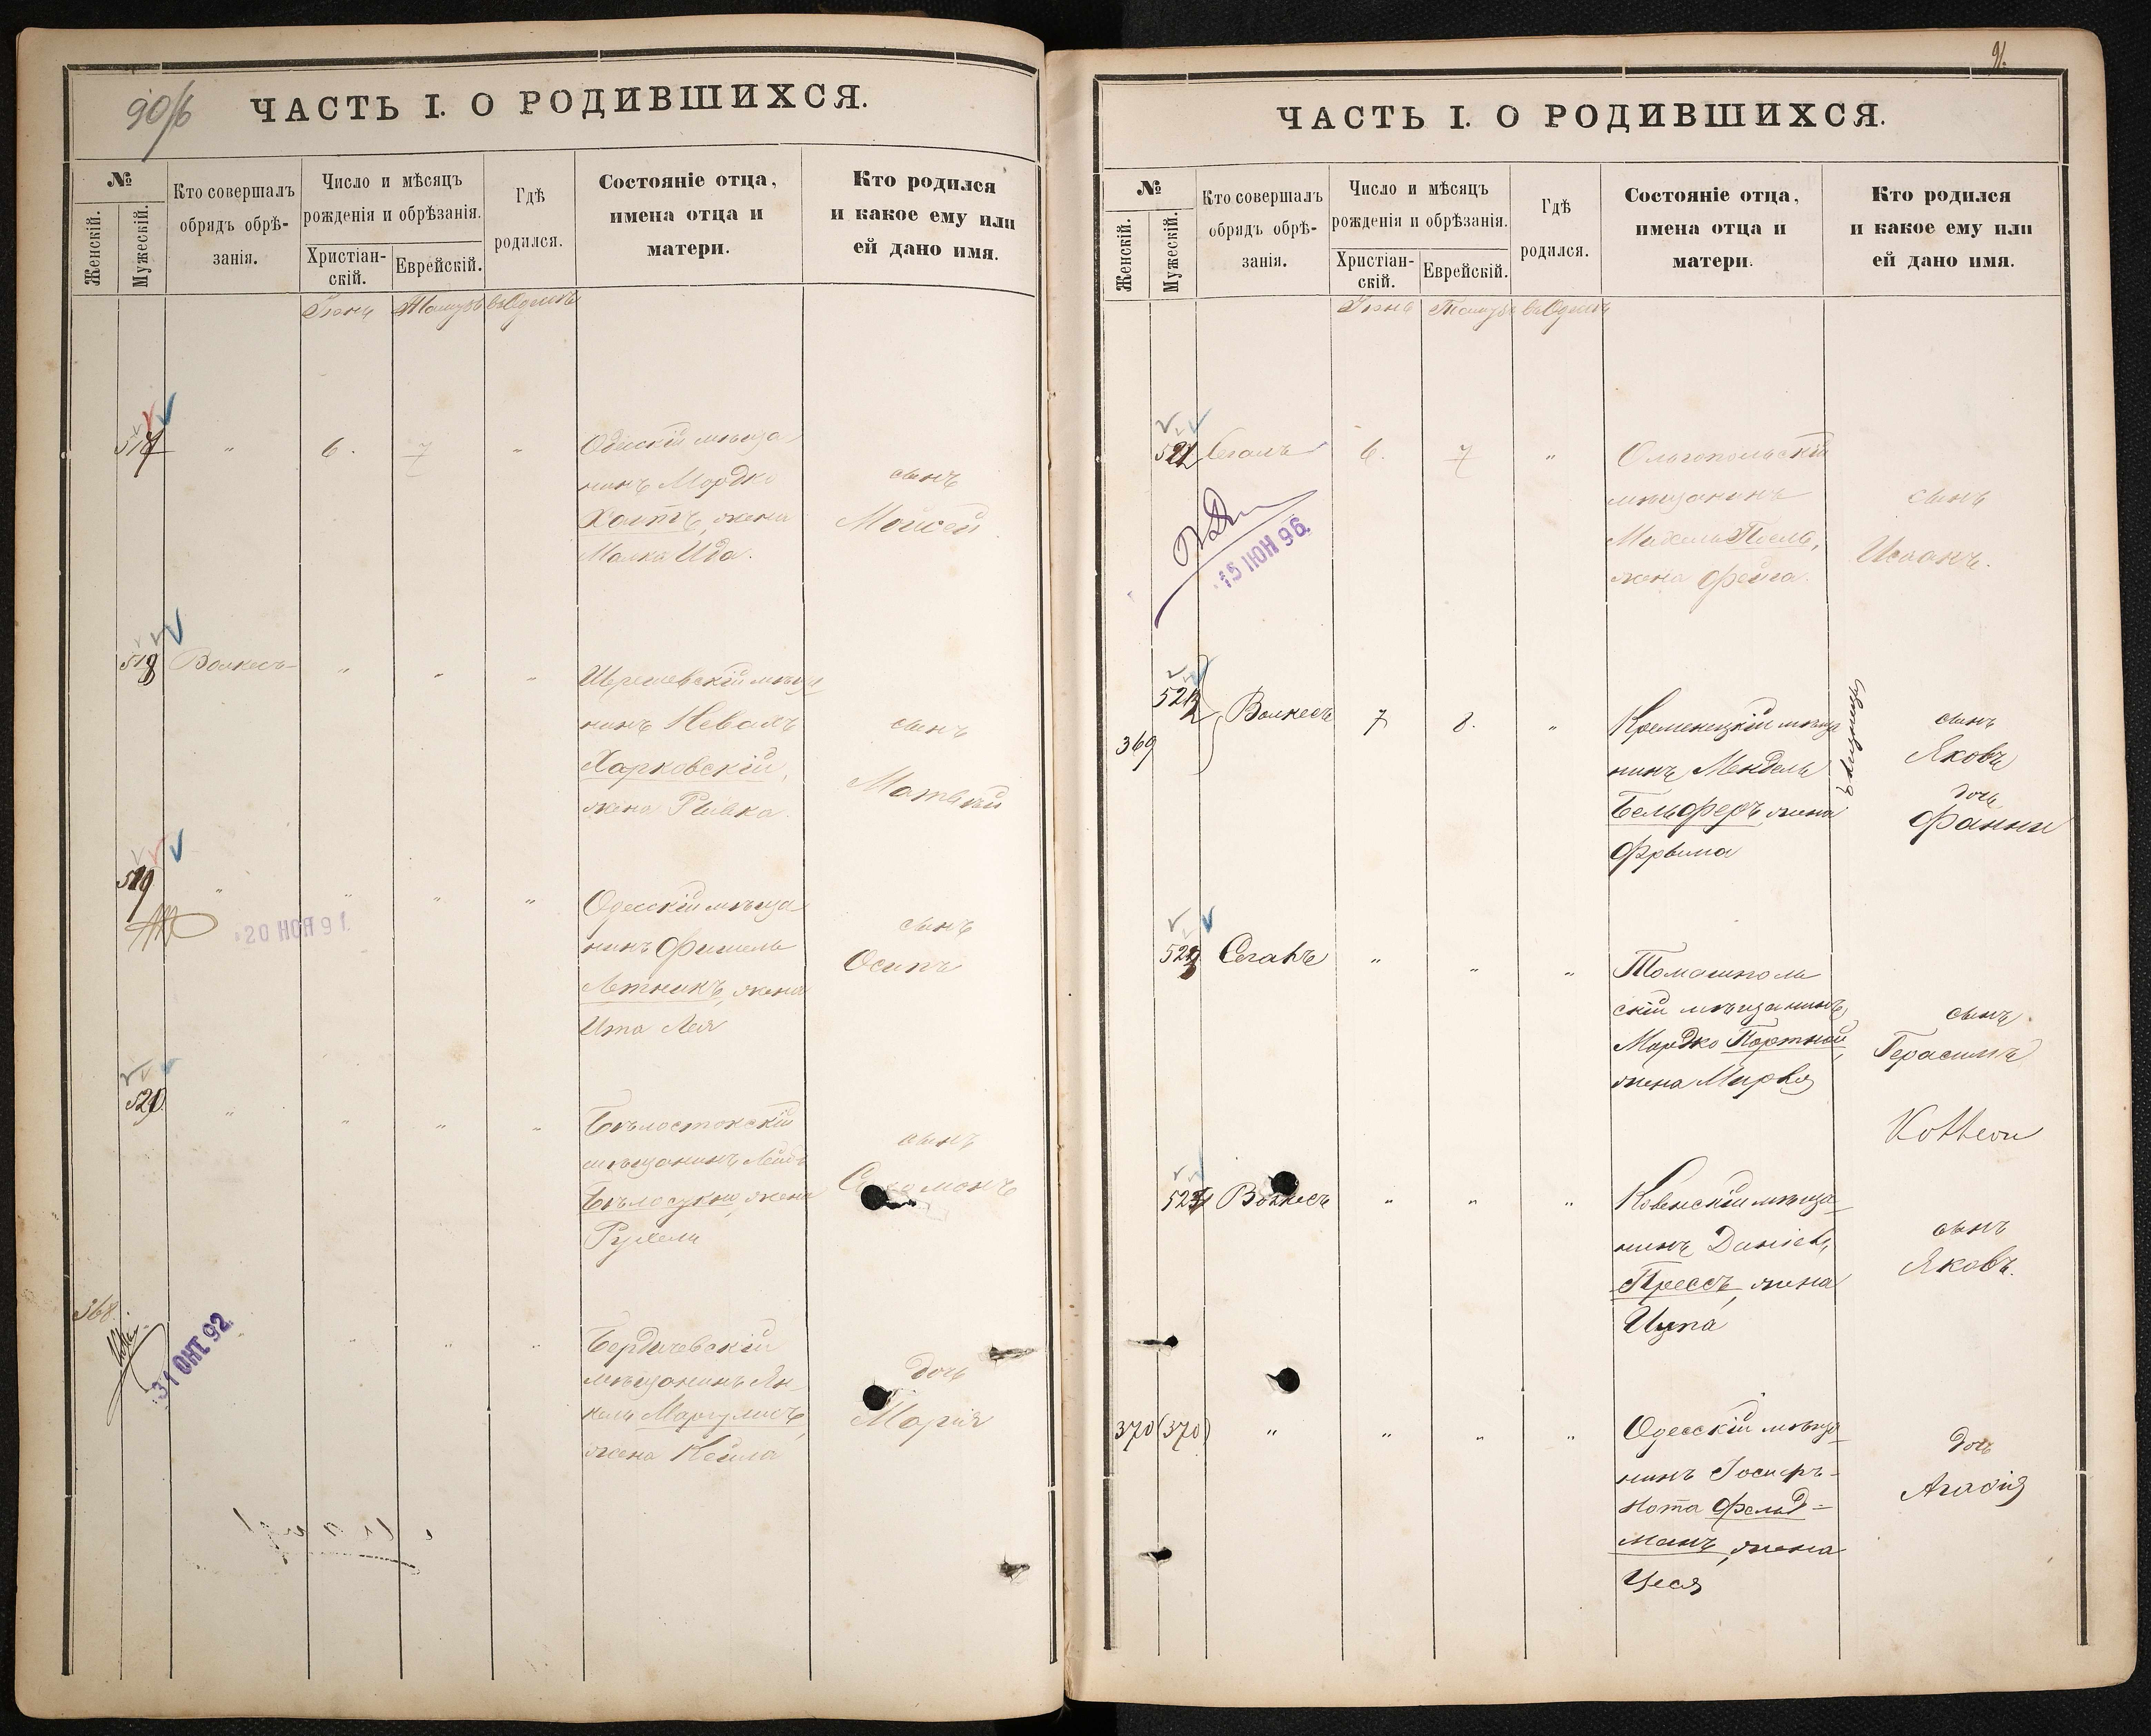 90/б
ЧАСТЬ I. О РОДИВШИХСЯ.
№
Женскій.
Мужескій.
Кто совершалъ
обрядъ обрѣ-
занія.
Число и мѣсяцъ
рожденія и обрѣзанія.
Христіан-
скій.
Еврейскій.
Гдѣ
родился.
Состояніе отца,
имена отца и
матери.
Кто родился
и какое ему или
ей дано имя.
Іюнь Тамузъ въ Одессѣ
517 " 6. 7 "
Одесскій мѣща
нинъ Мордко
жена
Малка Ида.
сынъ
Моисей
518 Волкесъ " " "
мѣща
нинъ
Харковскій,
жена Рывка.
сынъ
Матвѣй
519 " " " "
20 НОЯ 91.
Одесскій мѣща
нинъ Фишель
Летникъ, жена
Ита Лея
сынъ
Осипъ
520 " " " "
Бѣлостокскій
мѣщанинъ Лейб
жена
Рухель
сынъ
Соломонъ
368. " " "
31 ОКТ. 92.
Бердичевскій
мѣщанинъ Ян-
кель Маргулисъ,
жена Кейла
дочь
Марія
91.
ЧАСТЬ I. О РОДИВШИХСЯ.
№
Женскій.
Мужескій.
Кто совершалъ
обрядъ обрѣ-
занія.
Число и мѣсяцъ
рожденія и обрѣзанія.
Христіан-
скій.
Еврейскій.
Гдѣ
родился.
Состояніе отца,
имена отца и
матери.
Кто родился
и какое ему или
ей дано имя.
Іюнь Тамузъ въ Одессѣ
521 Сегалъ 6. 7 "
15 ІЮН 96.
Ольгопольскій
мѣщанинъ
жена Фейга.
сынъ
Исаакъ.
522
369
Волкесъ 7 8. "
Кременецкій мѣща
нинъ Мендель
Бельферъ, жена
Фрыма
близнецы
сынъ
Яковъ
дочь
Фанни
523 Сегалъ " " "
Томашполь
скій мѣщанинъ
Мордко Портной,
жена Мирля
сынъ
Герасимъ
524 Волкесъ " " "
Ковенскій мѣща
нинъ Даніель
Прессъ, жена
Ципа
сынъ
Яковъ.
370 (370) " " " "
Одесскій мѣща
нинъ Іосифъ-
Нота Фельд=
манъ, жена
Цеся
дочь